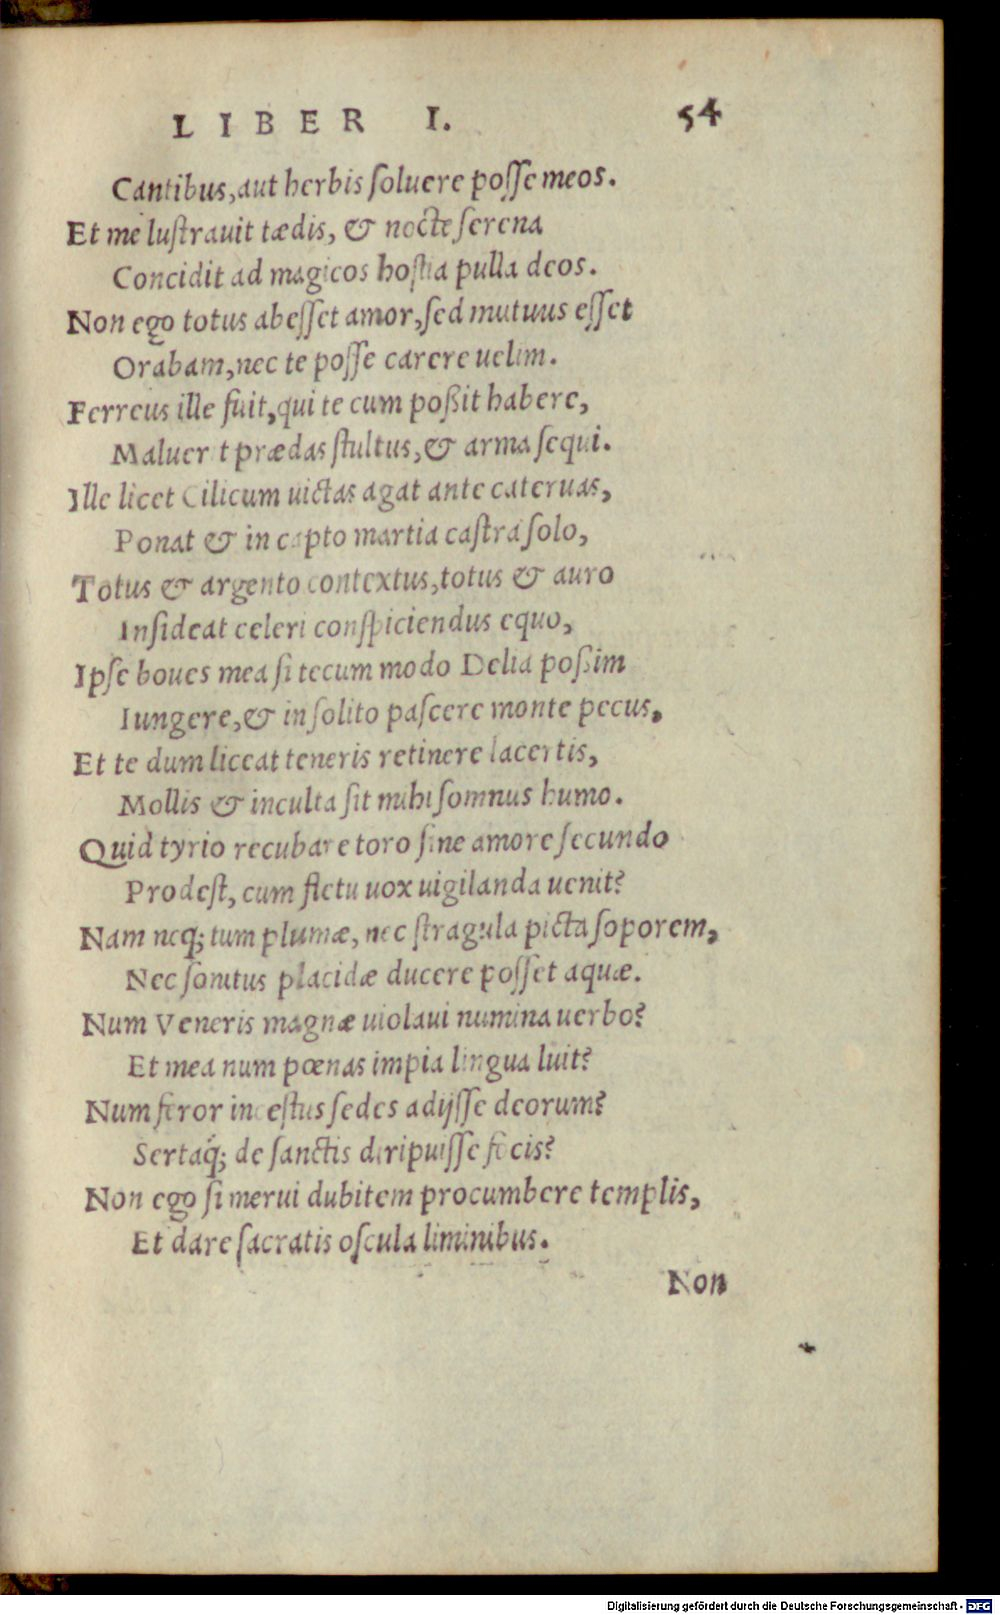 LIBER I. 54
Cantibus, aut herbis soluere posse meos.
Et me lustrauit tædis, & nocte serena
Concidit ad magicos hostia pulla deos.
Non ego totus abesset amor, sed mutuus esset
Orabam, nec te posse carere uelim.
Ferreus ille fuit, qui te cum poßit habere,
Maluer t prædas stultus, & arma sequi.
Ille licet Cilicum uictas agat ante cateruas,
Ponat & in capto martia castra solo,
Totus & argento contextus, totus & auro
Insideat celeri conspiciendus equo,
Ipse boues mea si tecum modo Delia poßim
Iungere, & in solito pascere monte pecus,
Et te dum liceat teneris retinere lacertis,
Mollis & inculta sit mihi somnus humo.
Quid tyrio recubare toro sine amore secundo
Prodest, cum fletu uox uigilanda uenit?
Nam neq; tum plumæ, nec stragula picta soporem,
Nec sonitus placidæ ducere posset aquæ.
Num Veneris magnæ uiolaui numina uerbo?
Et mea num pœnas impia lingua luit?
Num feror incestus sedes adijsse deorum?
Sertaq́; de sanctis diripuisse focis?
Non ego si merui dubitem procumbere templis,
Et dare sacratis oscula liminibus.
Non
Digitalisierung gefördert durch die Deutsche Forschungsgemeinschaft - DFG